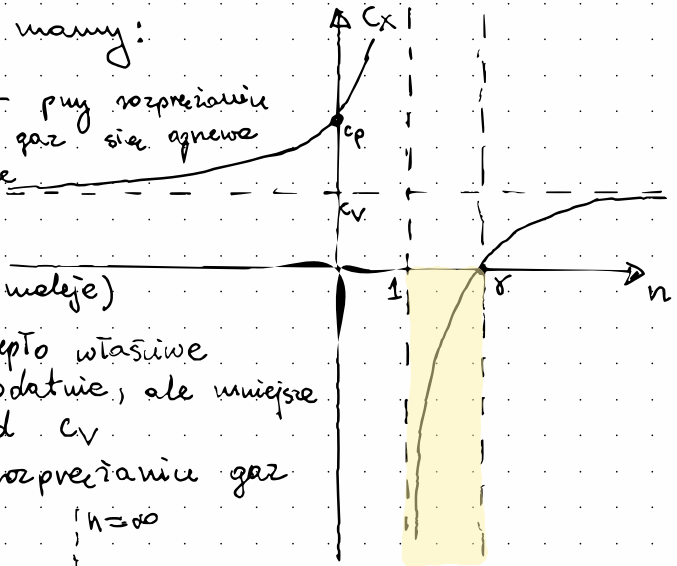 mamy:
przy rozprężaniu
gaz się ogrzewa
Cx
cp
cv
1
γ
n
maleje)
epło właściwe
odatnie, ale mniejsze
d cv
rozprężaniu gaz
n=∞